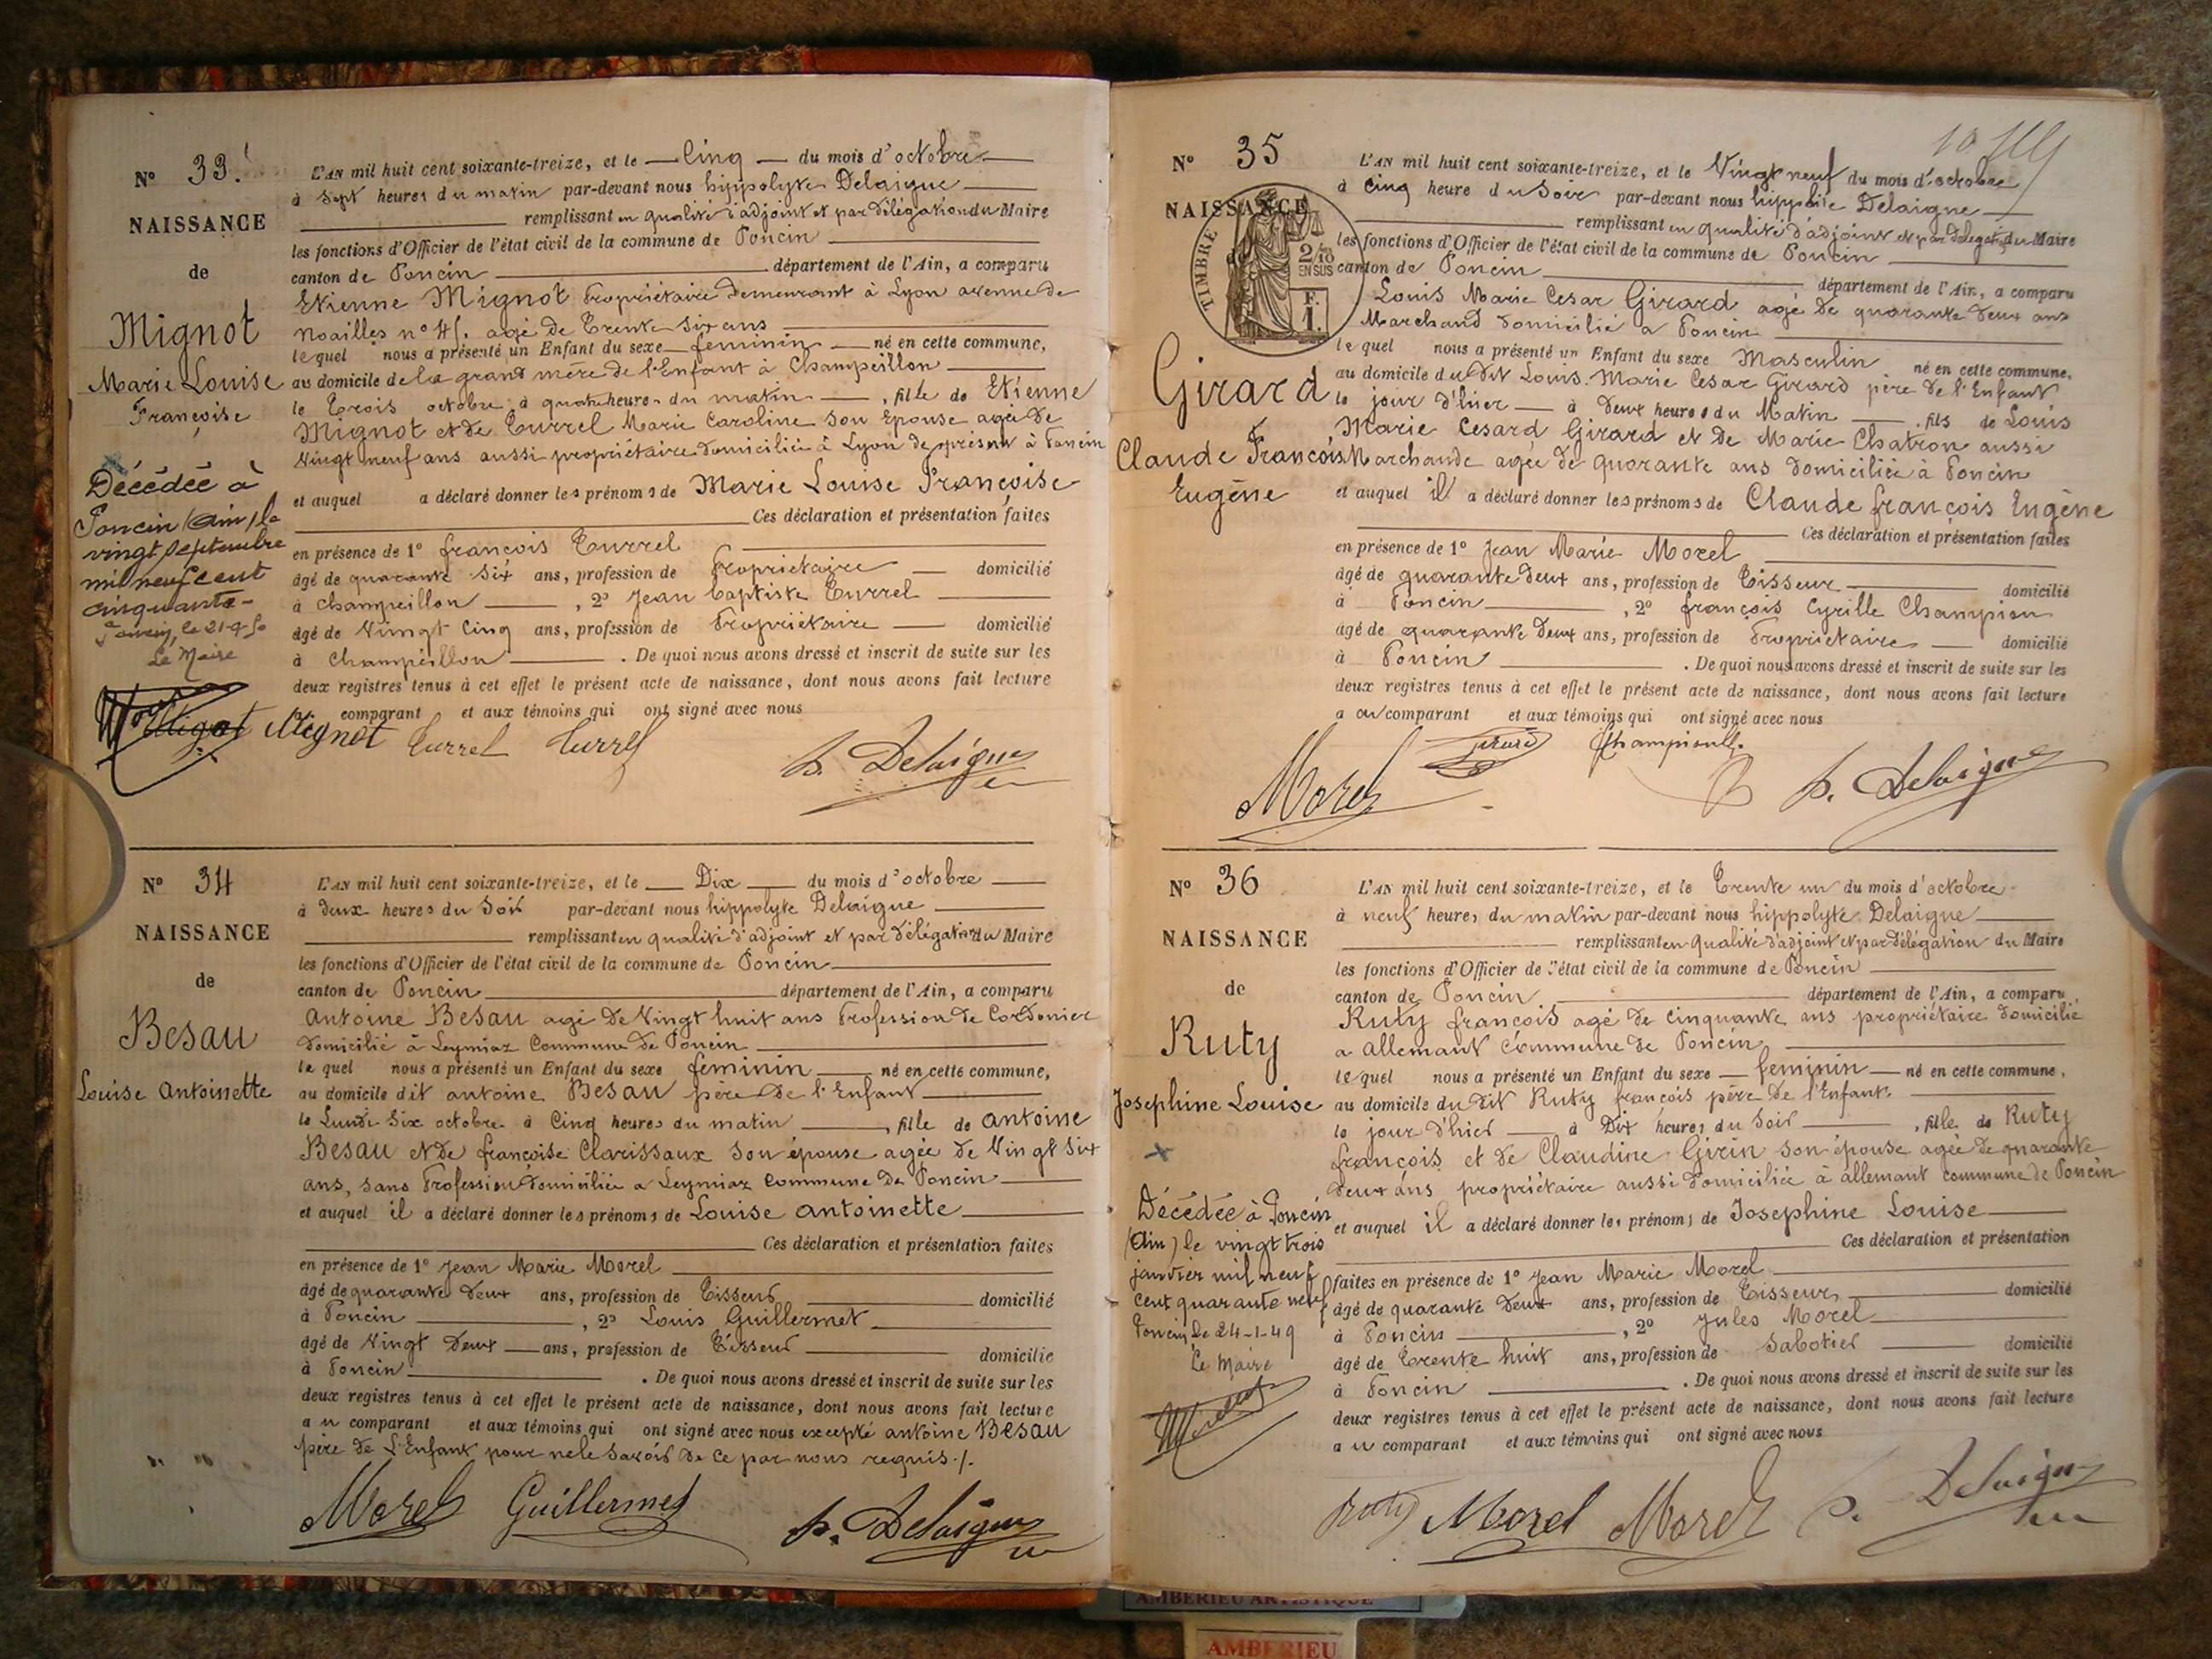 N° 33.
NAISSANCE
de
Mignot
Marie Louise
Françoise
Décédée à
Poncin (Ain) le
vingt septembre
mil neuf cent
cinquante-
Poncin, le 21-9-50
Le Maire
L'AN mil huit cent soixante-treize, et le Cinq du mois d'octobre
à Sept heures du matin par-devant nous hippolyte Delaigue
remplissant en qualité d'adjoint et par délégation du Maire
les fonctions d'Officier de l'état civil de la commune de Poncin
canton de Poncin département de l'Ain, a comparu
Etienne Mignot Propriétaire demeurant à Lyon avenue de
Noailles n° 45. agé de Trente six ans
lequel nous a présenté un Enfant du sexe feminin né en cette commune,
au domicile de la grand mère de l'Enfant à Champeillon
le Trois octobre à quatre heures du matin, fille de Etienne
Mignot et de Turrel Marie Caroline son épouse agée de
Vingt neuf ans aussi propriétaire domiciliée à Lyon de présent à Poncin
et auquel a déclaré donner les prénoms de Marie Louise Françoise
Ces déclaration et présentation faites
en présence de 1° françois Turrel
âgé de quarante six ans, profession de Propriétaire domicilié
à Champeillon, 2° Jean baptiste Turrel
âgé de Vingt Cinq ans, profession de Propriétaire domicilié
à Champeillon. De quoi nous avons dressé et inscrit de suite sur les
deux registres tenus à cet effet le présent acte de naissance, dont nous avons fait lecture
comparant et aux témoins qui ont signé avec nous
Mignot Turrel Turrel
h. Delaigue
N° 34
NAISSANCE
de
Besau
Louise Antoinette
L'AN mil huit cent soixante-treize, et le Dix du mois d'octobre
à deux heures du Soir par-devant nous hippolyte Delaigue
remplissant en qualité d'adjoint et par délégation du Maire
les fonctions d'Officier de l'état civil de la commune de Poncin
canton de Poncin département de l'Ain, a comparu
Antoine Besau agé de Vingt huit ans Profession de Cordonier
domicilié à Leymiaz Commune de Poncin
lequel nous a présenté un Enfant du sexe feminin né en cette commune,
au domicile dit antoine Besau père de l'Enfant
le Lundi Six octobre à Cinq heures du matin, fille de antoine
Besau et de françoise Clarissaux son épouse agée de Vingt Six
ans, sans Profession domiciliée a Leymiaz Commune de Poncin
et auquel il a déclaré donner les prénoms de Louise antoinette
Ces déclaration et présentation faites
en présence de 1° Jean Marie Morel
âgé de quarante deux ans, profession de Tisseur domicilié
à Poncin, 2° Louis Guillermet
âgé de Vingt deux ans, profession de Tisseur domicilié
à Poncin. De quoi nous avons dressé et inscrit de suite sur les
deux registres tenus à cet effet le présent acte de naissance, dont nous avons fait lecture
au comparant et aux témoins qui ont signé avec nous excepté antoine Besau
père de L'Enfant pour ne le savoir de ce par nous requis ./.
Morel Guillermet h. Delaigue
N° 35
NAISSANCE
TIMBRE
2/10
EN SUS
F.
1.
Girard
Claude François
Eugène
L'AN mil huit cent soixante-treize, et le Vingt neuf du mois d'octobre
à Cinq heure du Soir par-devant nous hippolite Delaigne
remplissant en qualité d'adjoint et par délégation du Maire
les fonctions d'Officier de l'état civil de la commune de Poncin
canton de Poncin département de l'Ain, a comparu
Louis Marie Cesar Girard agé de quarante deux ans
Marchand domicilié a Poncin
lequel nous a présenté un Enfant du sexe Masculin né en cette commune,
au domicile du dit Louis Marie Cesar Girard père de l'Enfant
le jour d'hier à deux heures du Matin, fils de Louis
Marie Cesard Girard et de Marie Chatron aussi
Marchande agée de quarante ans domiciliée à Poncin
et auquel il a déclaré donner les prénoms de Claude françois Eugène
Ces déclaration et présentation faites
en présence de 1° Jean Marie Morel
âgé de quarante deux ans, profession de Tisseur domicilié
à Poncin, 2° françois Cyrille Champion
âgé de quarante deux ans, profession de Propriétaire domicilié
à Poncin. De quoi nous avons dressé et inscrit de suite sur les
deux registres tenus à cet effet le présent acte de naissance, dont nous avons fait lecture
a au comparant et aux témoins qui ont signé avec nous
Morel Girard Champion h. Delaigue
N° 36
NAISSANCE
de
Ruty
Josephine Louise
Décédée à Poncin
(Ain) le vingt trois
janvier mil neuf
cent quarante neuf
Poncin, le 24-1-49
Le Maire
L'AN mil huit cent soixante-treize, et le Trente un du mois d'octobre
à neuf heures du matin par-devant nous hippolyte Delaigue
remplissant en qualité d'adjoint et par délégation du Maire
les fonctions d'Officier de l'état civil de la commune de Poncin
canton de Poncin département de l'Ain, a comparu
Ruty françois agé de Cinquante ans propriétaire domicilié
a allemant Commune de Poncin
lequel nous a présenté un Enfant du sexe feminin né en cette commune,
au domicile du dit Ruty françois père de l'Enfant
le jour d'hier à Dix heures du Soir, fille de Ruty
françois et de Claudine Girin son épouse agée de quarante
deux ans propriétaire aussi domiciliée à allemant commune de Poncin
et auquel il a déclaré donner les prénoms de Josephine Louise
Ces déclaration et présentation
faites en présence de 1° Jean Marie Morel
âgé de quarante deux ans, profession de Tisseur domicilié
à Poncin, 2° Jules Morel
âgé de Trente huit ans, profession de Sabotier domicilié
à Poncin. De quoi nous avons dressé et inscrit de suite sur les
deux registres tenus à cet effet le présent acte de naissance, dont nous avons fait lecture
au comparant et aux témoins qui ont signé avec nous
Ruty Morel Morel h. Delaigue
AMBERIEU ARTISTIQUE
AMBERIEU